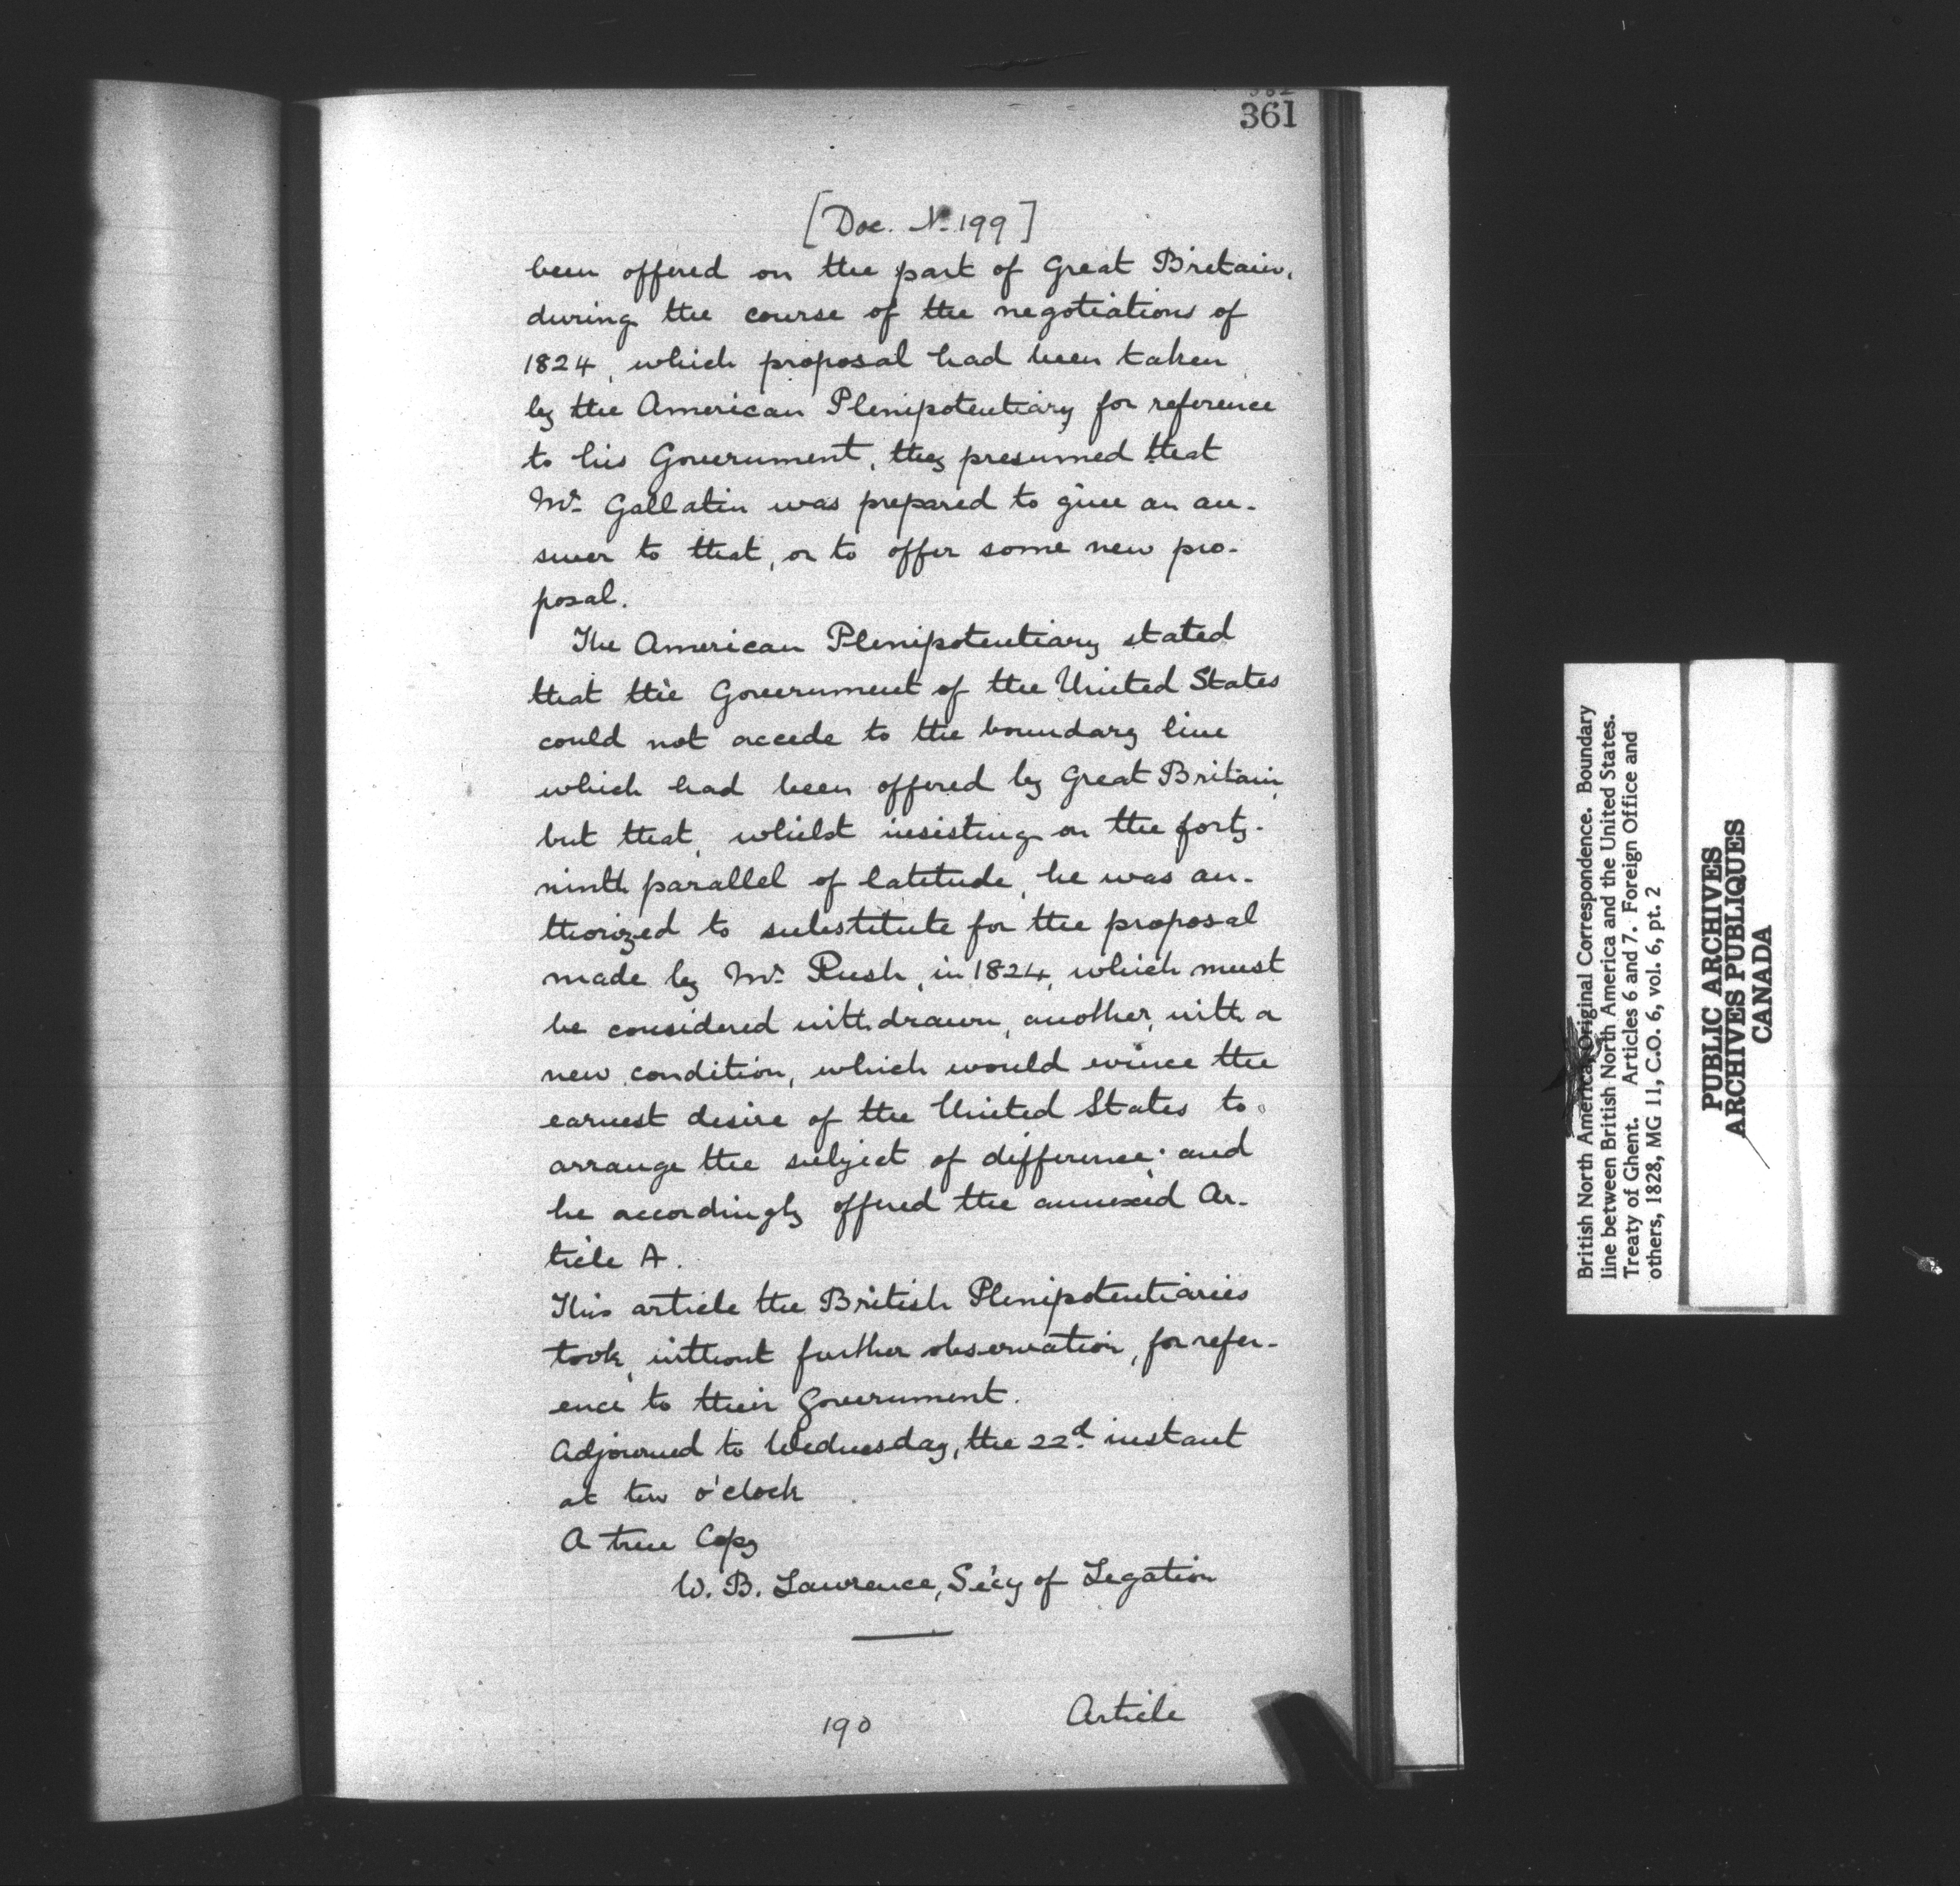 361
[Doc. No. 199]
been offered on the part of Great Britain,
during the course of the negotiations of
1824, which proposal had been taken
by the American Plenipotentiary for reference
to his Government, they presumed that
Mr. Gallatin was prepared to give an an-
swer to that, or to offer some new pro-
posal.
The American Plenipotentiary stated
that the Government of the United States
could not accede to the boundary line
which had been offered by Great Britain,
but that, whilst insisting on the forty-
ninth parallel of latitude, he was au-
thorized to substitute for the proposal
made by Mr. Rush, in 1824, which must
be considered withdrawn, another, with a
new condition, which would evince the
earnest desire of the United States to
arrange the subject of difference; and
he accordingly offered the annexed Ar-
ticle A.
This article the British Plenipotentiaries
took, without further observation, for refer-
ence to their Government.
Adjourned to Wednesday, the 22d instant
at ten o'clock
A true Copy
W. B. Lawrence, Sec'y of Legation
190
Article
British North America, Original Correspondence. Boundary
line between British North America and the United States.
Treaty of Ghent. Articles 6 and 7. Foreign Office and
others, 1828, MG 11, C.O. 6, vol. 6, pt. 2
PUBLIC ARCHIVES
ARCHIVES PUBLIQUES
CANADA